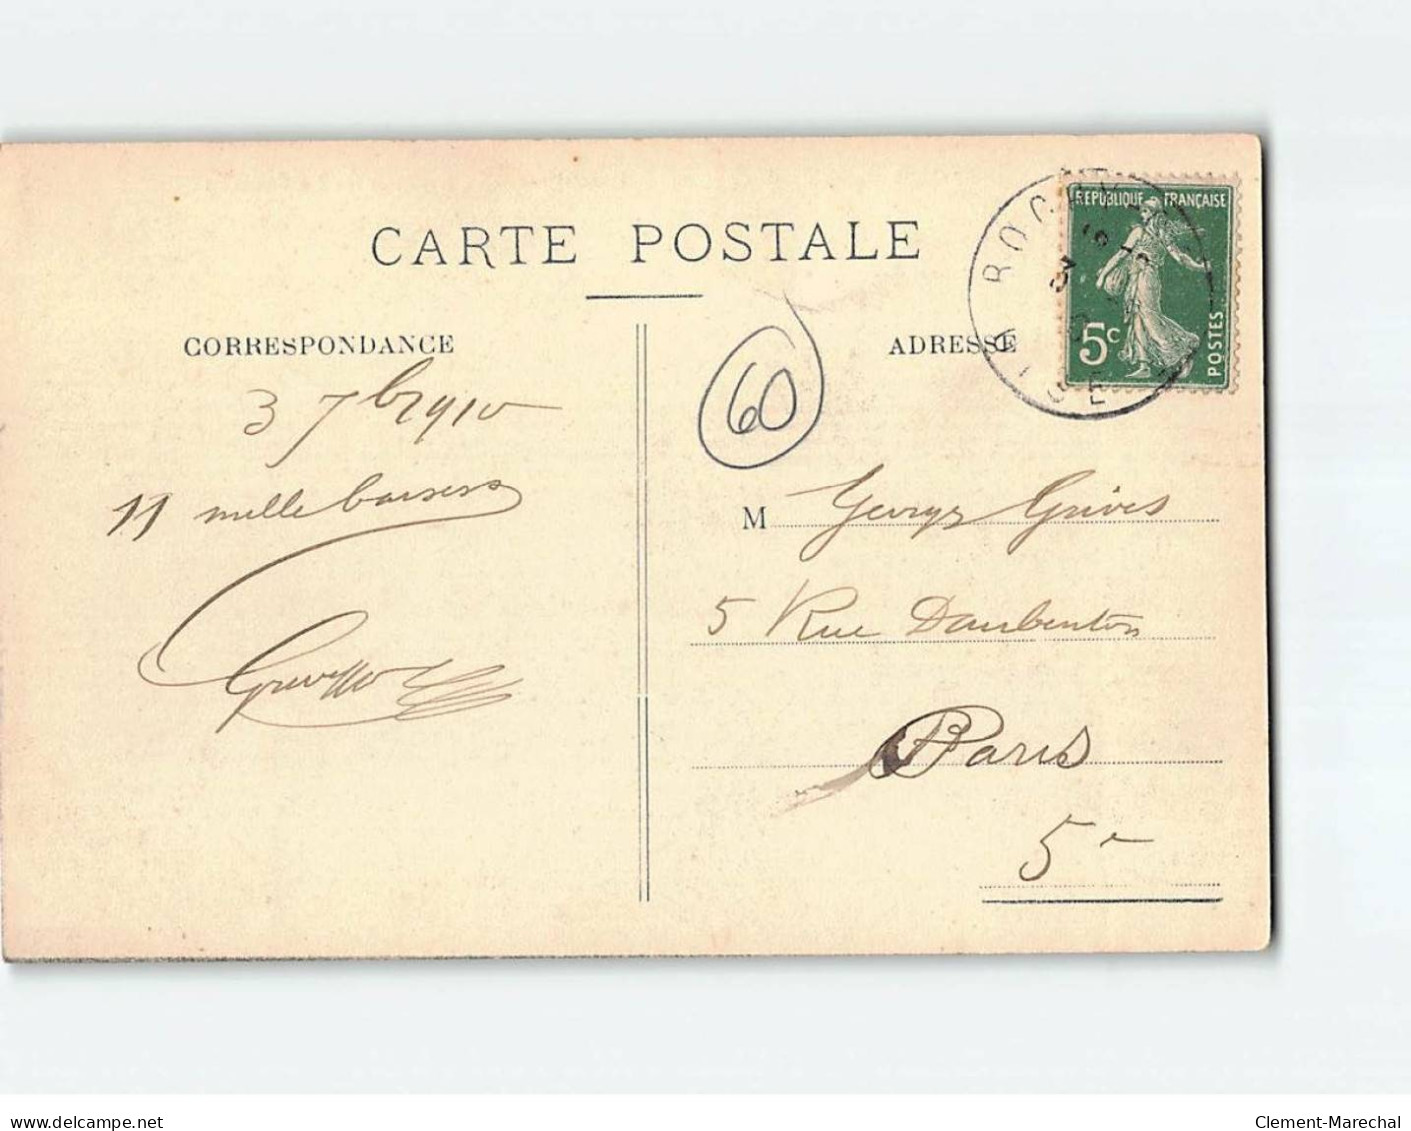 CARTE POSTALE
CORRESPONDANCE
3 7bre 1910
11 mille baisers
60
ADRESSE
RÉPUBLIQUE FRANÇAISE
5c
POSTES
OISE
M Georges Grives
5 Rue Daubenton
Paris
5e
delcampe.net
Clement-Marechal